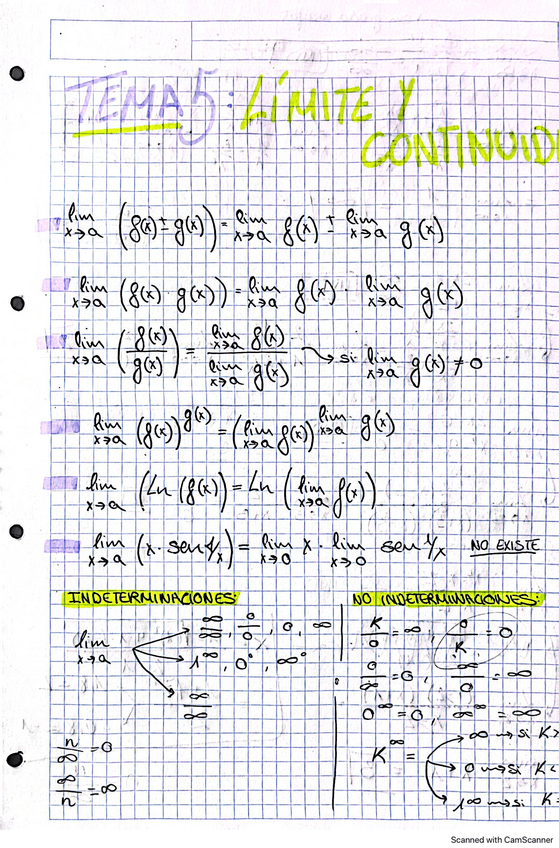 TEMA 5: LÍMITE Y
CONTINUID
lim x→a (f(x) ± g(x)) = lim x→a f(x) ± lim x→a g(x)
lim x→a (f(x) · g(x)) = lim x→a f(x) · lim x→a g(x)
lim x→a (f(x)/g(x)) = lim x→a f(x) / lim x→a g(x) → si lim x→a g(x) ≠ 0
lim x→a (f(x))^g(x) = (lim x→a f(x))^lim x→a g(x)
lim x→a (Ln (f(x)) = Ln (lim x→a f(x))
lim x→a (x · sen 1/x) = lim x→0 x · lim x→0 sen 1/x NO EXISTE
INDETERMINACIONES:
lim x→a
∞/∞, 0/0, 0, ∞
1^∞, 0^0, ∞^0
∞/∞
n/∞ = 0
∞/n = ∞
NO INDETERMINACIONES:
K/0 = ∞, 0/K = 0
0/∞ = 0, ∞/0 = ∞
0^∞ = 0, ∞^∞ = ∞
K^∞ =
∞ → si K>
0 → si K<
1^∞ → si K=
Scanned with CamScanner